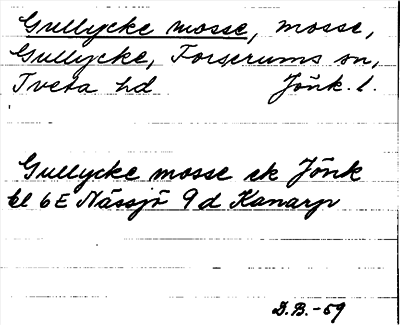 Gullycke mosse, mosse,
Gullycke, Forserums sn,
Tveta hd Jönk. l.
Gullycke mosse ek Jönk
bl 6E Nässjö 9d Kanarp
D.B.-59